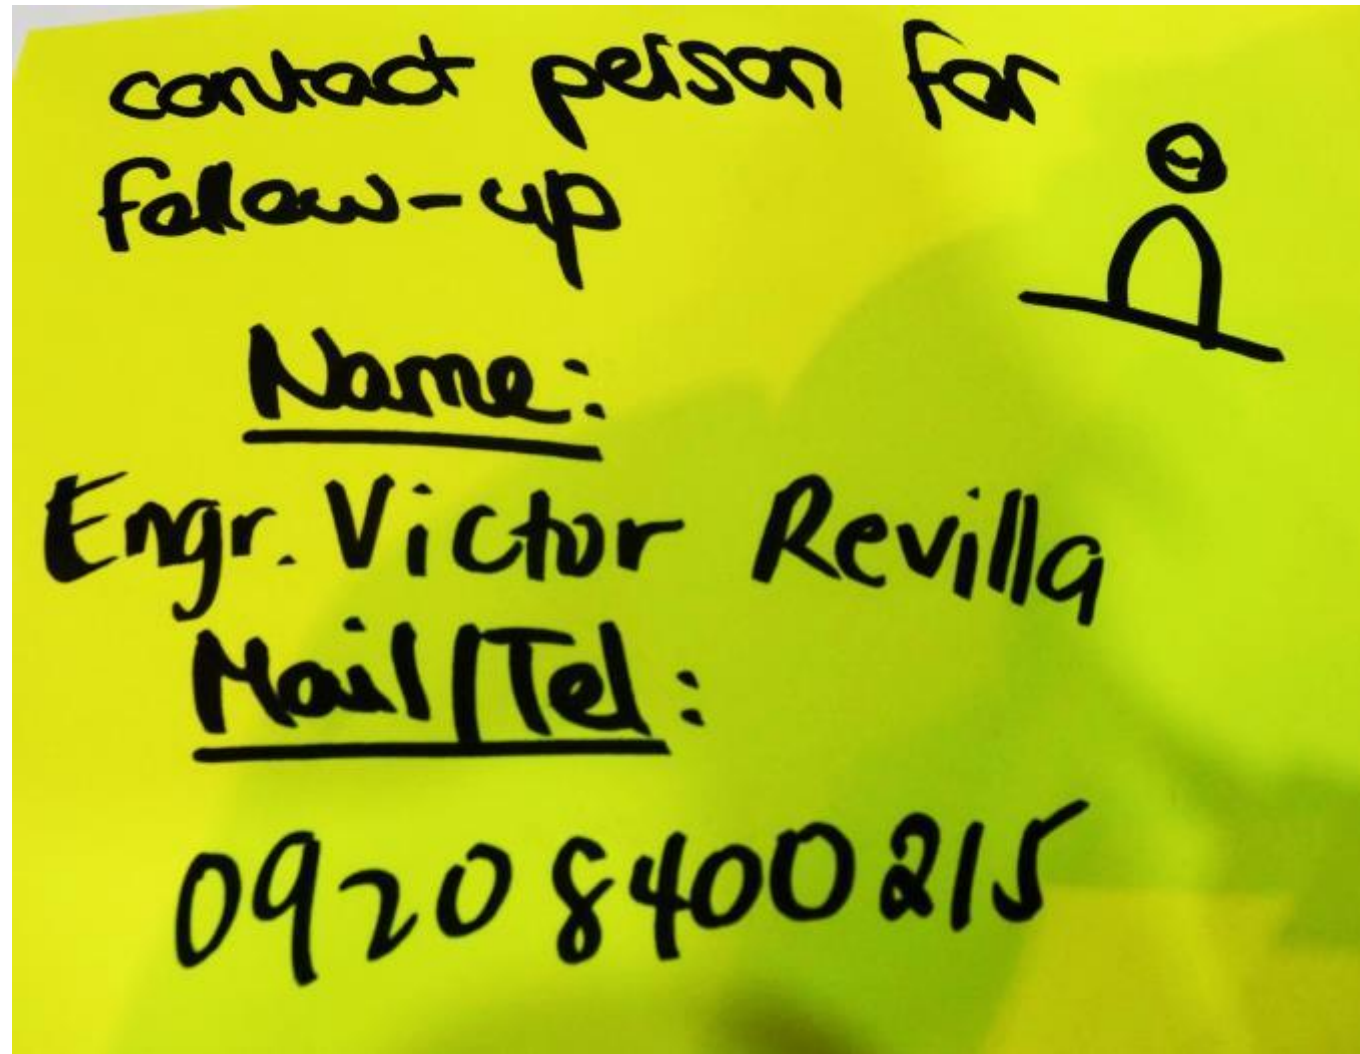 contact person for
follow-up
Name:
Engr. Victor Revilla
Mail/Tel:
09208400215